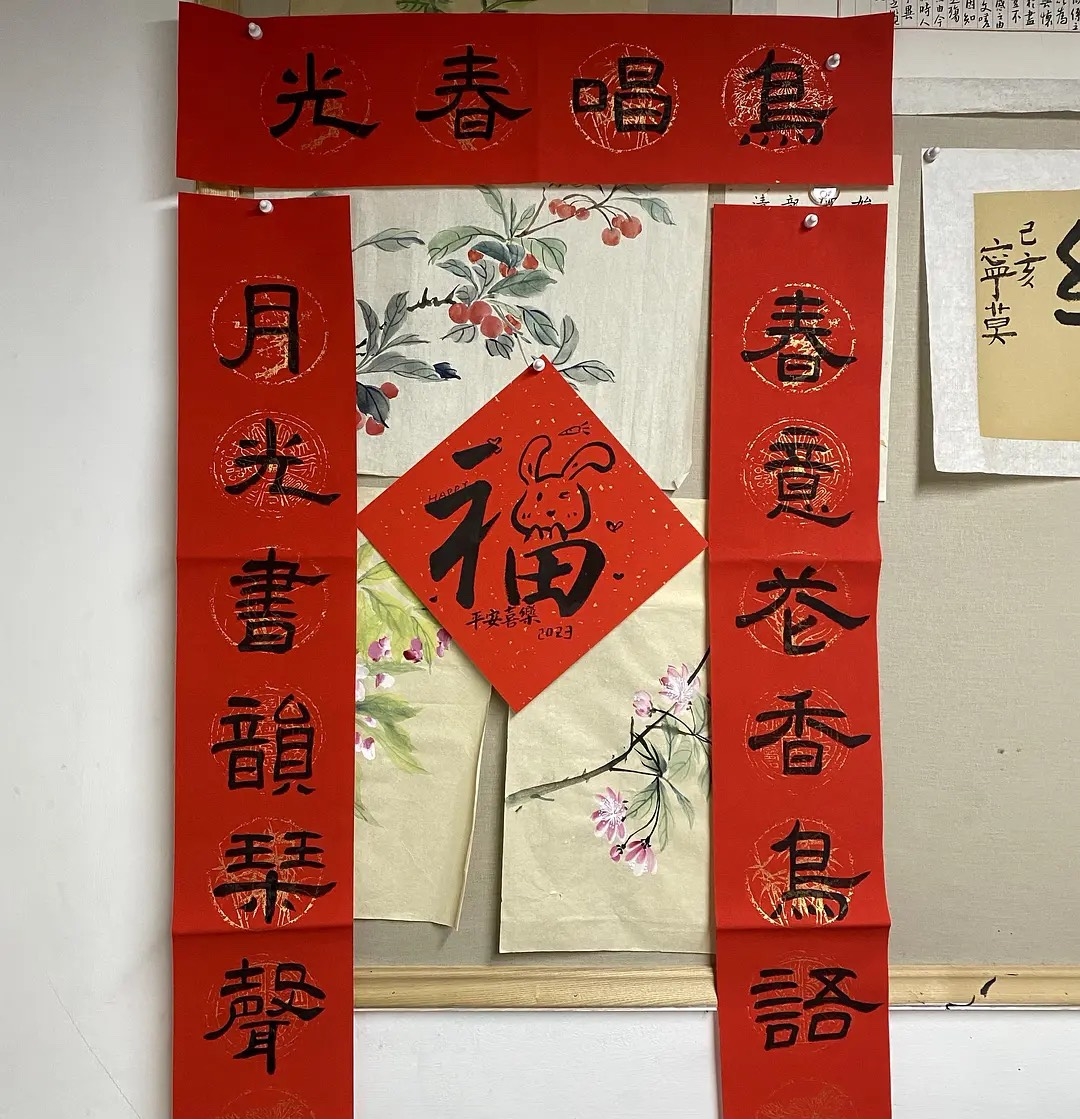 鳥唱春光
春意花香鳥語
月光書韻琹聲
福
HAPPY
平安喜樂
2023
己亥
寧莫